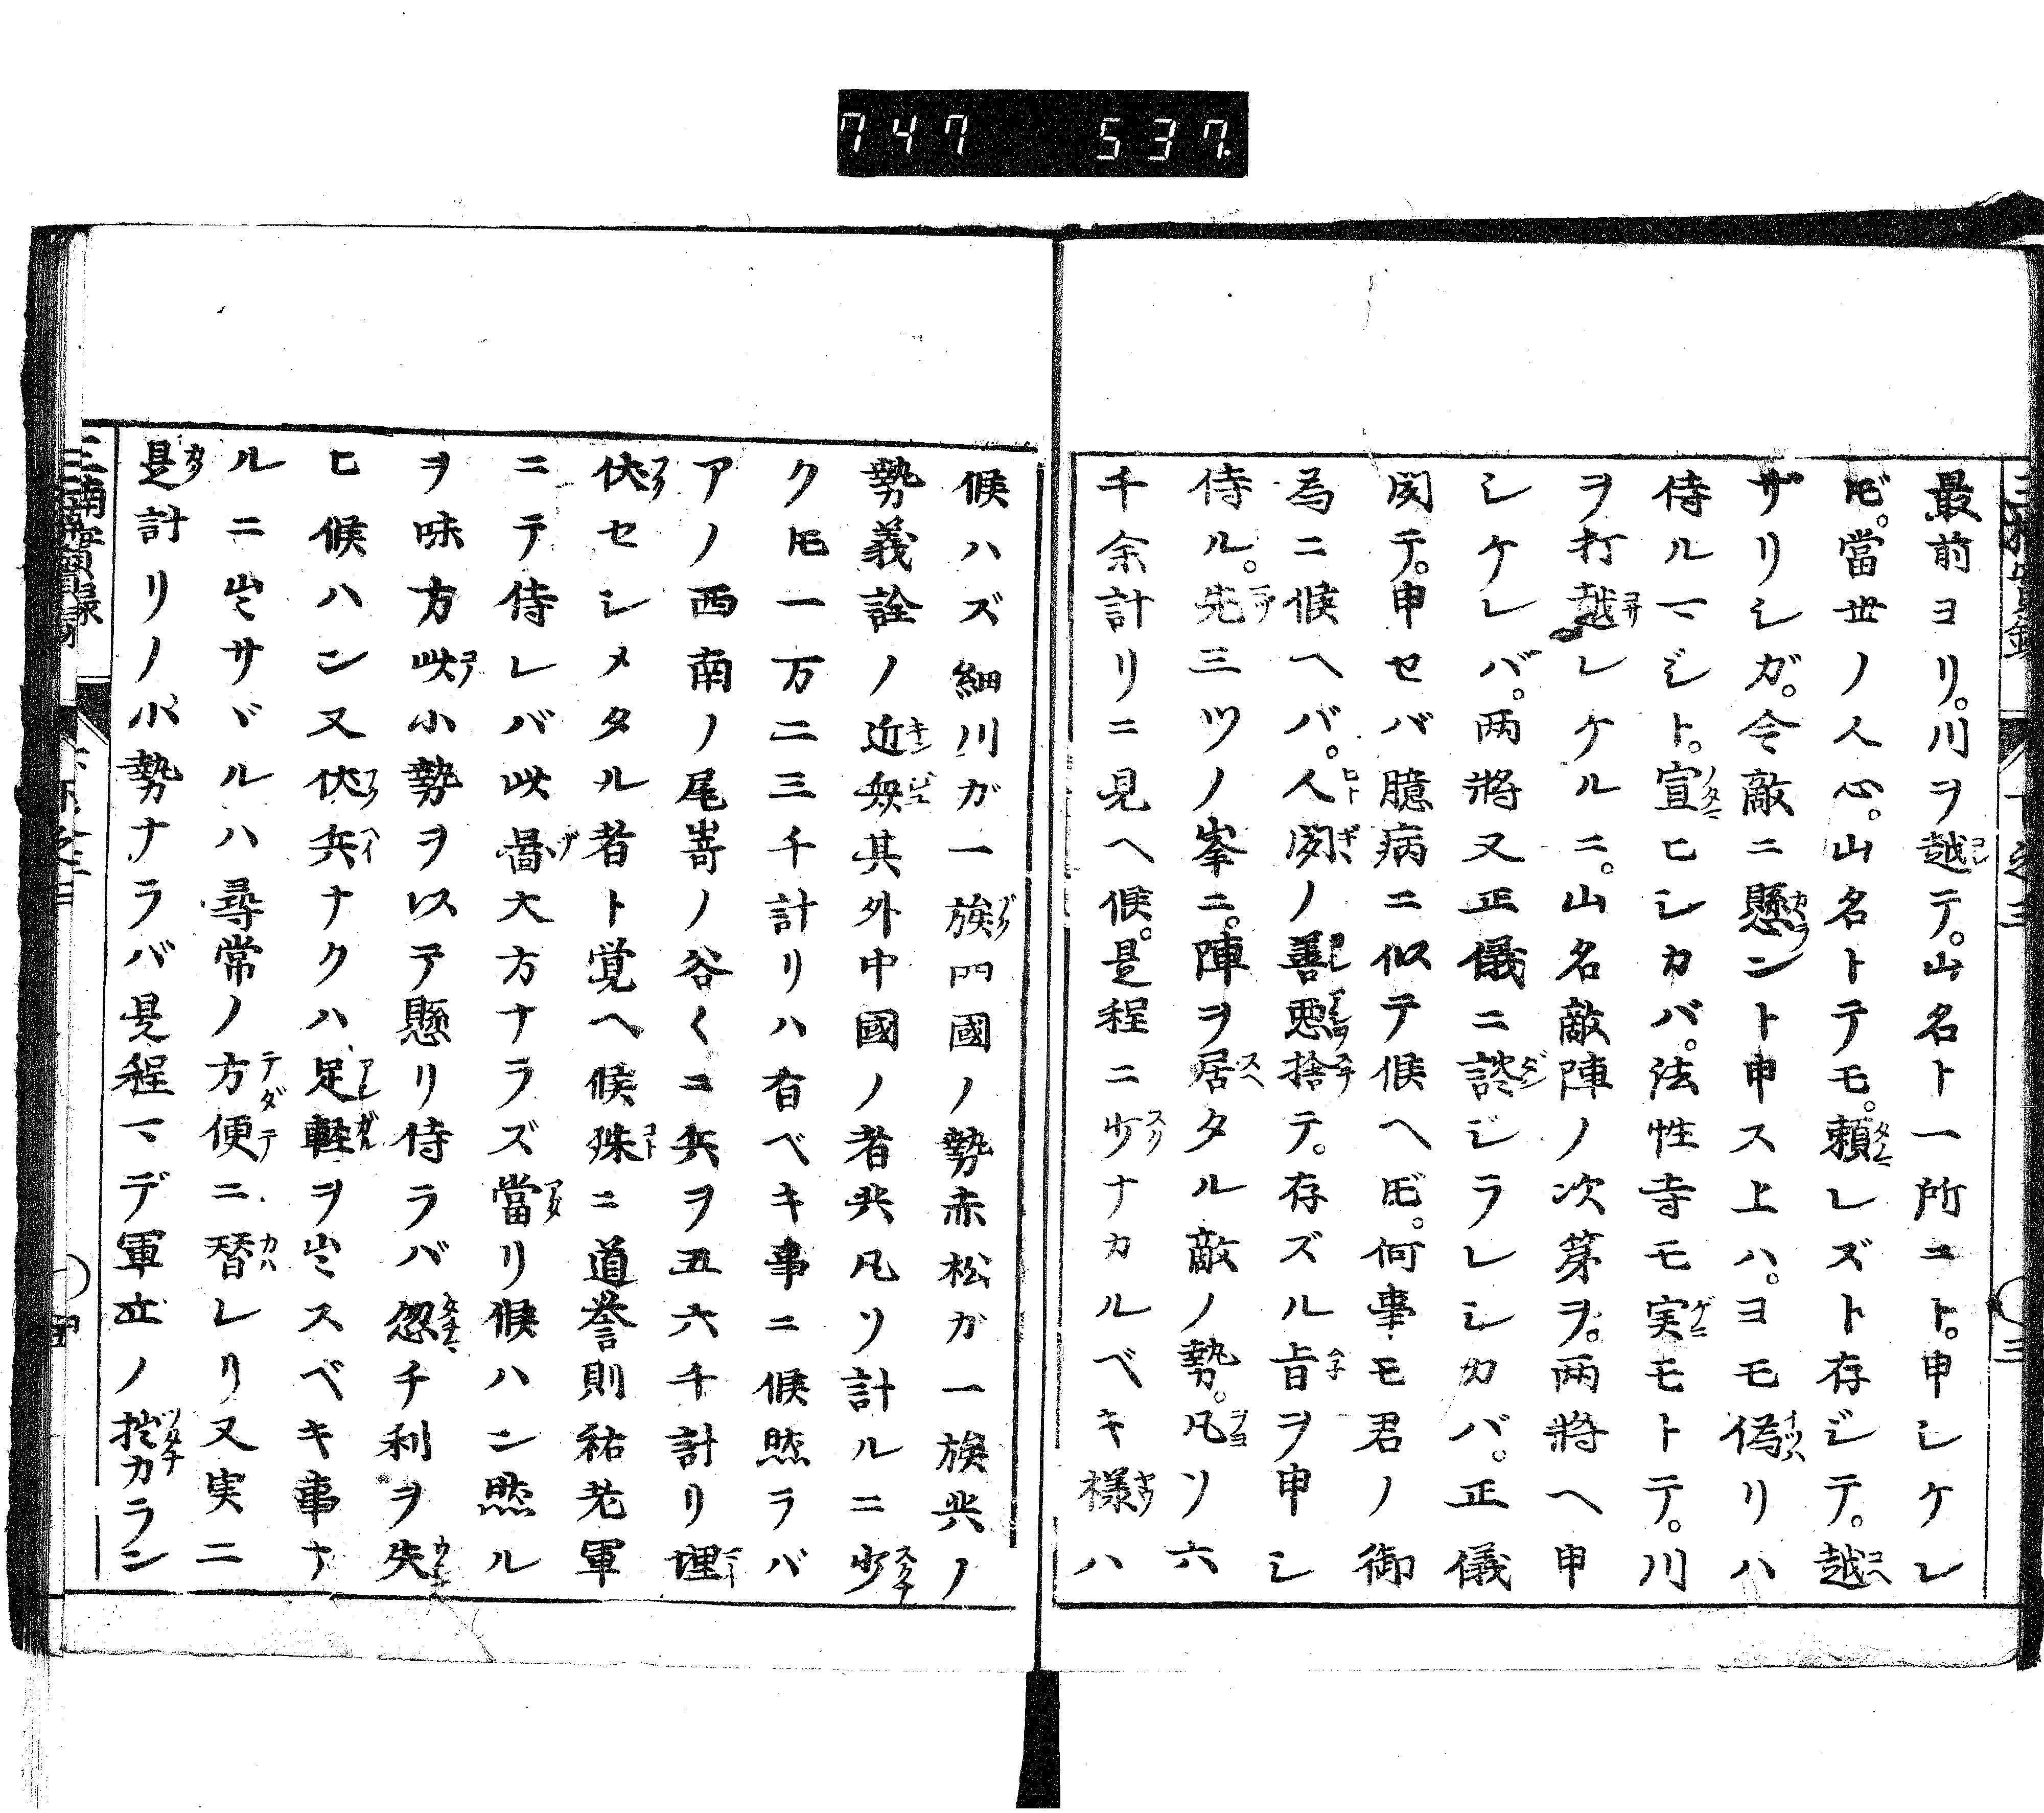 747 537
最前ヨリ。川ヲ越テ。山名ト一所ニト。申シケレ
𪜈。當世ノ人心。山名トテモ。頼レズト存ジテ。越
ザリシガ。今敵ニ懸ント申ス上ハ。ヨモ偽リハ
侍ルマジト。宣ヒシカバ。法性寺モ実モトテ。川
ヲ打越レケルニ。山名敵陣ノ次第ヲ。両將ヘ申
シケレバ。両將又正儀ニ談ジラレシカバ。正儀
聞テ。申セバ臆病ニ似テ候ヘ𪜈。何事モ君ノ御
為ニ候ヘバ。人聞ノ善悪捨テ。存ズル旨ヲ申シ
侍ル。先三ツノ峯ニ。陣ヲ居タル敵ノ勢。凡ソ六
千余計リニ見ヘ候。是程ニ少ナカルベキ様ハ
候ハズ細川ガ一族四國ノ勢赤松ガ一族共ノ
勢義詮ノ近習其外中國ノ者共凡ソ計ルニ少
ク𪜈一万二三千計リハ有ベキ事ニ候然ラバ
アノ西南ノ尾嵜ノ谷〱ニ兵ヲ五六千計リ埋
伏セシメタル者ト覚ヘ候殊ニ道誉則祐老軍
ニテ侍レバ此啚大方ナラズ當リ候ハン然ル
ヲ味方此小勢ヲ以テ懸リ侍ラバ忽チ利ヲ失
ヒ候ハン又伏兵ナクハ足軽ヲ出スベキ事ナ
ルニ出サヾルハ尋常ノ方便ニ替レリ又実ニ
是計リノ小勢ナラバ是程マデ軍立ノ拙カラン